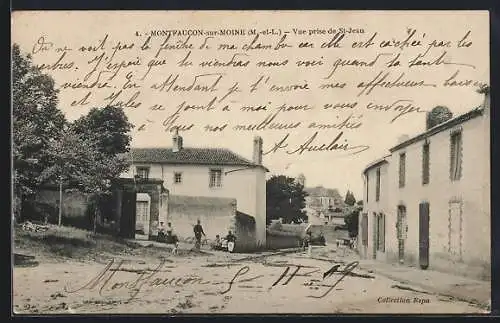 4. - MONTFAUCON-SUR-MOINE (M.-et-L.) - Vue prise de St-Jean
On ne voit pas la fenêtre de ma chambre car elle est cachée par les
arbres. J'espère que tu viendras nous voir quand ta tante
sera ici, en attendant je t'envoie mes affectueux baisers
et se joint à moi pour vous envoyer
à tous nos meilleures amitiés
A. Auclair
Montfaucon 5-11-19
Collection Repa